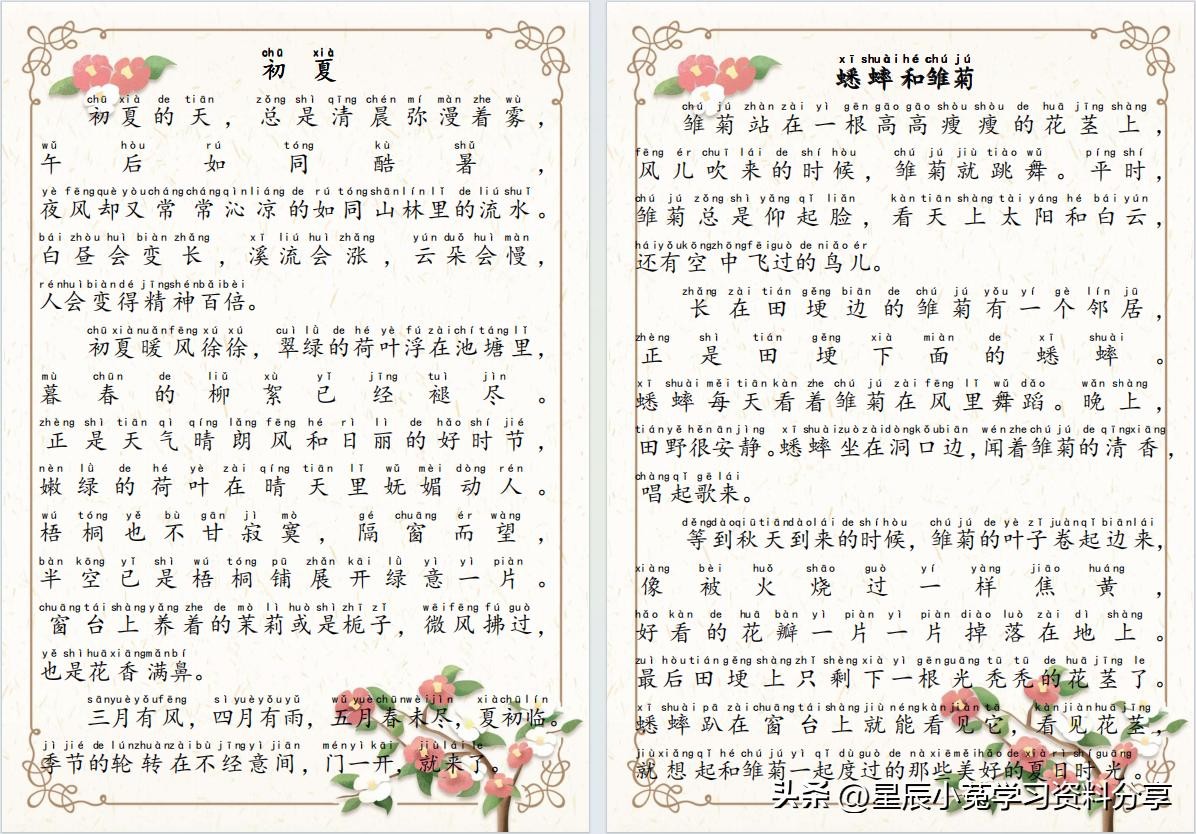 chū xià
初 夏
chū xià de tiān zǒng shì qīng chén mí màn zhe wù
初夏的天，总是清晨弥漫着雾，
wǔ hòu rú tóng kù shǔ
午后如同酷暑，
yè fēng què yòu cháng cháng qìn liáng de rú tóng shān lín lǐ de liú shuǐ
夜风却又常常沁凉的如同山林里的流水。
bái zhòu huì biàn zhǎng xī liú huì zhǎng yún duǒ huì màn
白昼会变长，溪流会涨，云朵会慢，
rén huì biàn dé jīng shén bǎi bèi
人会变得精神百倍。
chū xià nuǎn fēng xú xú cuì lǜ de hé yè fú zài chí táng lǐ
初夏暖风徐徐，翠绿的荷叶浮在池塘里，
mù chūn de liǔ xù yǐ jīng tuì jìn
暮春的柳絮已经褪尽。
zhèng shì tiān qì qíng lǎng fēng hé rì lì de hǎo shí jié
正是天气晴朗风和日丽的好时节，
nèn lǜ de hé yè zài qíng tiān lǐ wǔ mèi dòng rén
嫩绿的荷叶在晴天里妩媚动人。
wú tóng yě bù gān jì mò gé chuāng ér wàng
梧桐也不甘寂寞，隔窗而望，
bàn kōng yǐ shì wú tóng pū zhǎn kāi lǜ yì yì piàn
半空已是梧桐铺展开绿意一片。
chuāng tái shàng yǎng zhe de mò lì huò shì zhī zǐ wēi fēng fú guò
窗台上养着的茉莉或是栀子，微风拂过，
yě shì huā xiāng mǎn bí
也是花香满鼻。
sān yuè yǒu fēng sì yuè yǒu yǔ wǔ yuè chūn wèi jìn xià chū lín
三月有风，四月有雨，五月春未尽，夏初临。
jì jié de lún zhuàn zài bù jīng yì jiān mén yì kāi jiù lái le
季节的轮转在不经意间，门一开，就来了。
xī shuài hé chú jú
蟋蟀和雏菊
chú jú zhàn zài yì gēn gāo gāo shòu shòu de huā jīng shàng
雏菊站在一根高高瘦瘦的花茎上，
fēng ér chuī lái de shí hòu chú jú jiù tiào wǔ píng shí
风儿吹来的时候，雏菊就跳舞。平时，
chú jú zǒng shì yǎng qǐ liǎn kàn tiān shàng tài yáng hé bái yún
雏菊总是仰起脸，看天上太阳和白云，
hái yǒu kōng zhōng fēi guò de niǎo ér
还有空中飞过的鸟儿。
zhǎng zài tián gěng biān de chú jú yǒu yí gè lín jū
长在田埂边的雏菊有一个邻居，
zhèng shì tián gěng xià miàn de xī shuài
正是田埂下面的蟋蟀。
xī shuài měi tiān kàn zhe chú jú zài fēng lǐ wǔ dǎo wǎn shàng
蟋蟀每天看着雏菊在风里舞蹈。晚上，
tián yě hěn ān jìng xī shuài zuò zài dòng kǒu biān wén zhe chú jú de qīng xiāng
田野很安静。蟋蟀坐在洞口边，闻着雏菊的清香，
chàng qǐ gē lái
唱起歌来。
děng dào qiū tiān dào lái de shí hòu chú jú de yè zǐ juàn qǐ biān lái
等到秋天到来的时候，雏菊的叶子卷起边来，
xiàng bèi huǒ shāo guò yí yàng jiāo huáng
像被火烧过一样焦黄，
hǎo kàn de huā bàn yì piàn yì piàn diào luò zài dì shàng
好看的花瓣一片一片掉落在地上。
zuì hòu tián gěng shàng zhǐ shèng xià yì gēn guāng tū tū de huā jīng le
最后田埂上只剩下一根光秃秃的花茎了。
xī shuài pā zài chuāng tái shàng jiù néng kàn jiàn tā kàn jiàn huā jīng
蟋蟀趴在窗台上就能看见它，看见花茎，
jiù xiǎng qǐ hé chú jú yì qǐ dù guò de nà xiē měi hǎo de xià rì shí guāng
就想起和雏菊一起度过的那些美好的夏日时光。
头条 @星辰小菟学习资料分享